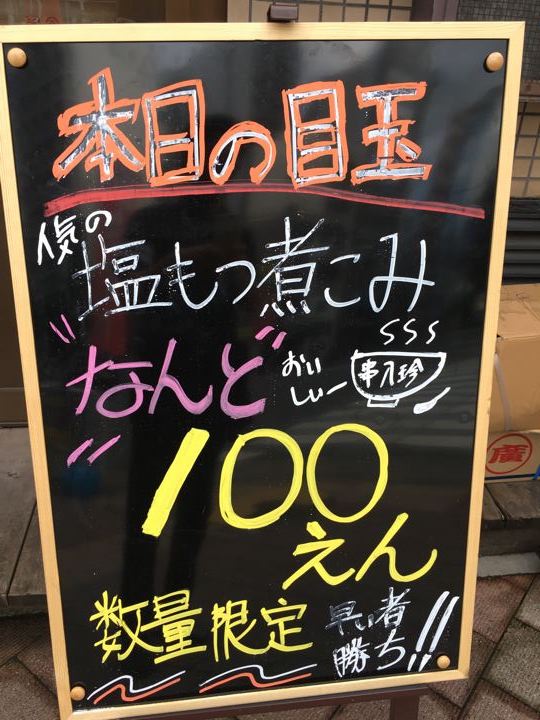 本日の目玉
人気の
塩もつ煮こみ
なんど
おいしいー
串八珍
100
えん
数量限定
早い者
勝ち!!
廣